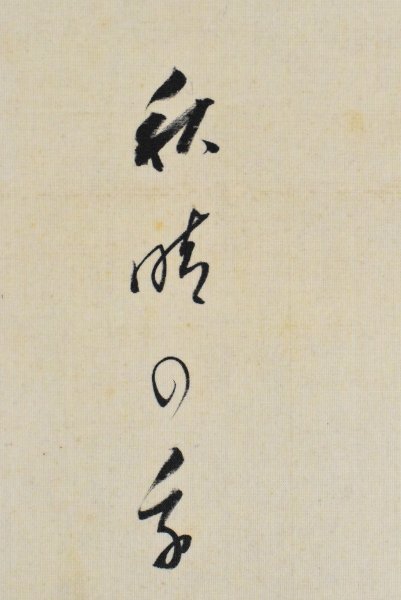 秋晴の